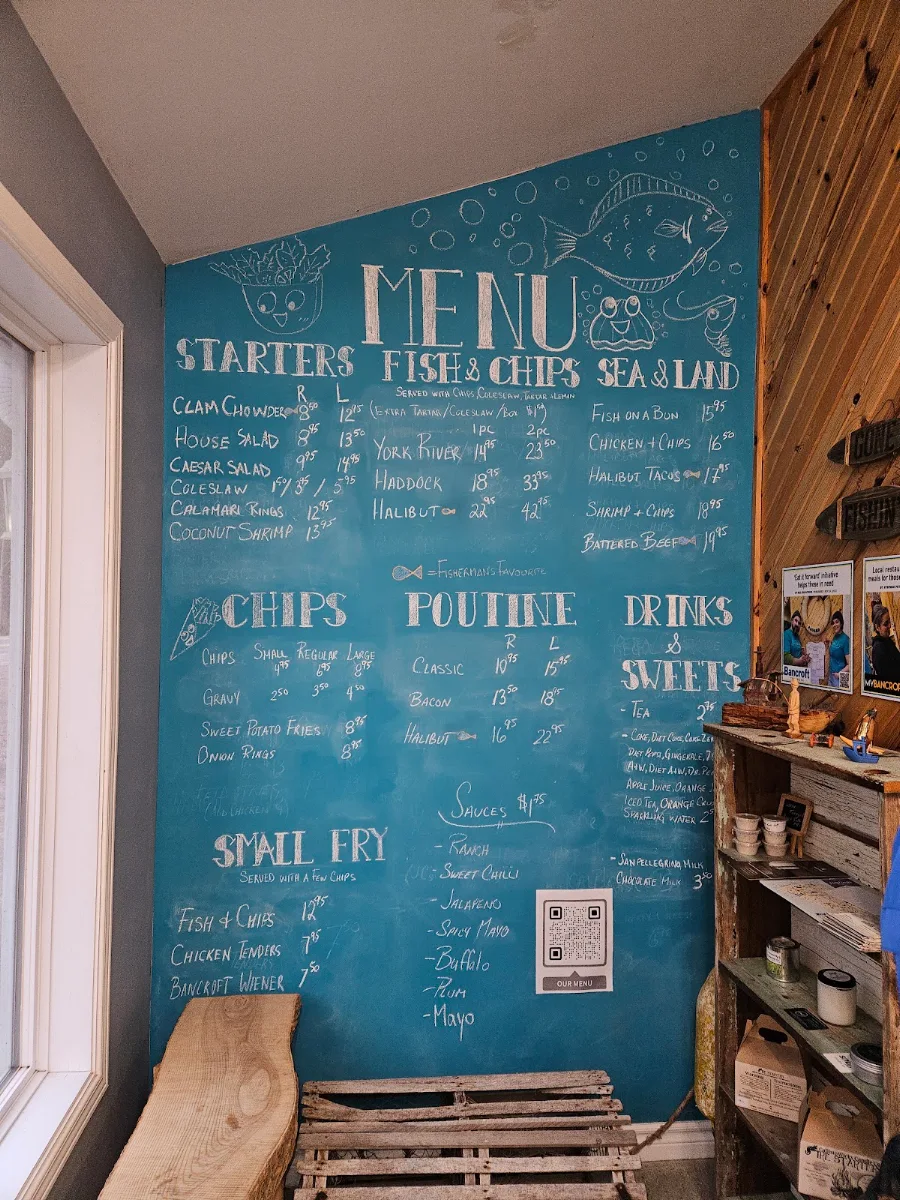 MENU
STARTERS
R L
CLAM CHOWDER 8.50 12.95
HOUSE SALAD 8.95 13.50
CAESAR SALAD 9.95 14.95
COLESLAW 1.50/3.95/5.95
CALAMARI RINGS 12.95
COCONUT SHRIMP 13.95
FISH & CHIPS
SERVED WITH CHIPS, COLESLAW, TARTAR + LEMON
(EXTRA TARTAR/COLESLAW/BOX $1.50)
1pc 2pc
YORK RIVER 14.95 23.50
HADDOCK 18.95 33.95
HALIBUT 22.95 42.95
= FISHERMANS FAVOURITE
SEA & LAND
FISH ON A BUN 15.95
CHICKEN + CHIPS 16.50
HALIBUT TACOS 17.95
SHRIMP + CHIPS 18.95
BATTERED BEEF 19.95
CHIPS
SMALL REGULAR LARGE
CHIPS 4.95 6.95 8.95
GRAVY 2.50 3.50 4.50
SWEET POTATO FRIES 8.95
ONION RINGS 8.95
POUTINE
R L
CLASSIC 10.95 15.95
BACON 13.50 18.95
HALIBUT 16.95 22.95
DRINKS
&
SWEETS
- TEA
- COKE, DIET COKE, COKE ZERO
DIET PEPSI, GINGERALE,
A+W, DIET A+W, DR. PE
APPLE JUICE, ORANGE
ICED TEA, ORANGE CRU
SPARKLING WATER
- SANPELLEGRINO, MILK
CHOCOLATE MILK 3.50
SMALL FRY
SERVED WITH A FEW CHIPS
FISH & CHIPS 12.95
CHICKEN TENDERS 7.95
BANCROFT WIENER 7.50
SAUCES $1.75
- RANCH
- SWEET CHILLI
- JALAPENO
- SPICY MAYO
- Buffalo
- PLUM
- Mayo
OUR MENU
GONE
FISHIN
'Eat it forward' initiative
helps those in need
Bancroft
Local restau
meals for those
MYBANCROF